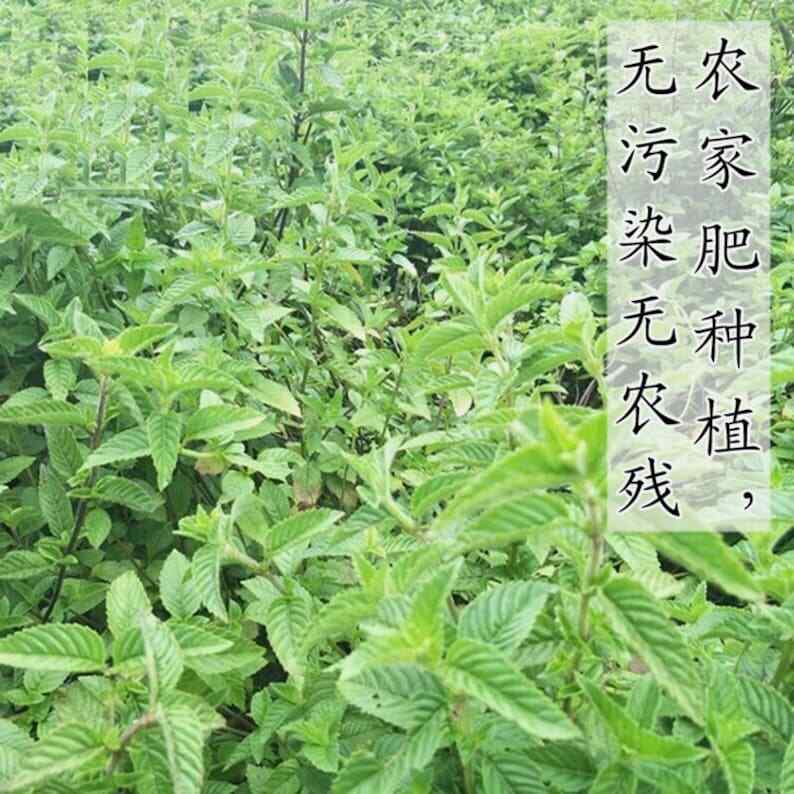 农家肥种植，
无污染无农残